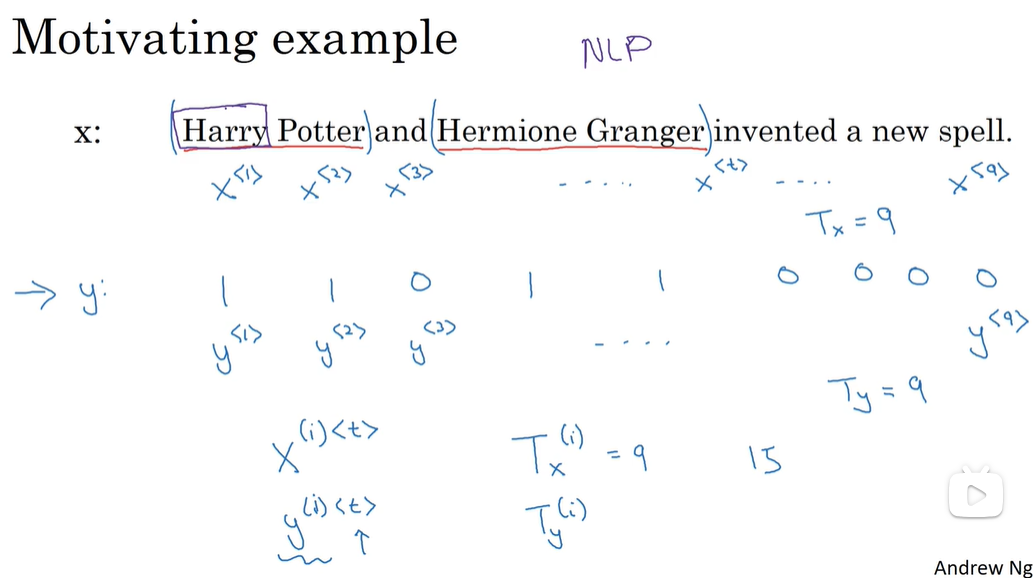 Motivating example
NLP
x: (Harry Potter) and (Hermione Granger) invented a new spell.
x<1> x<2> x<3> ..... x<t> .... x<9>
Tx = 9
→ y: 1 1 0 1 1 0 0 0 0
y<1> y<2> y<3> ..... y<9>
Ty = 9
X(i)<t> Tx(i) = 9 15
y(i)<t> Ty(i)
↑
Andrew Ng